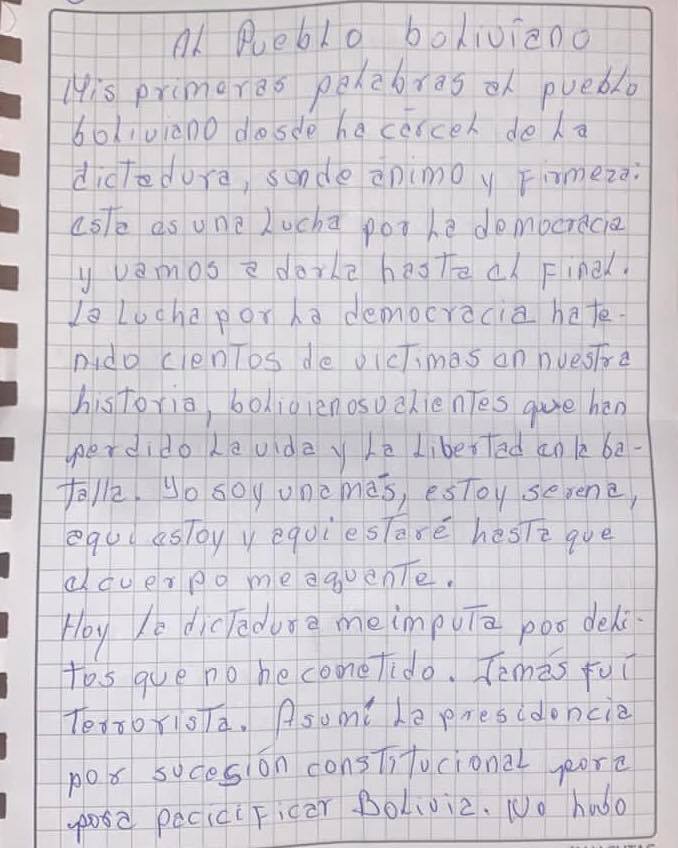 Al Pueblo boliviano
Mis primeras palabras al pueblo
boliviano desde la cárcel de la
dictadura, son de ánimo y Firmeza:
esta es una lucha por la democracia
y vamos a darla hasta el Final.
La lucha por la democracia ha te-
nido cientos de victimas en nuestra
historia, bolivianos valientes que han
perdido la vida y la libertad en la ba-
talla. Yo soy una más, estoy serena,
aqui estoy y aqui estaré hasta que
el cuerpo me aguante.
Hoy la dictadura me imputa por deli-
tos que no he cometido. Jamás fuí
Terrorista. Asumí la presidencia
por sucesión constitucional para
para pacicificar Bolivia. No hubo